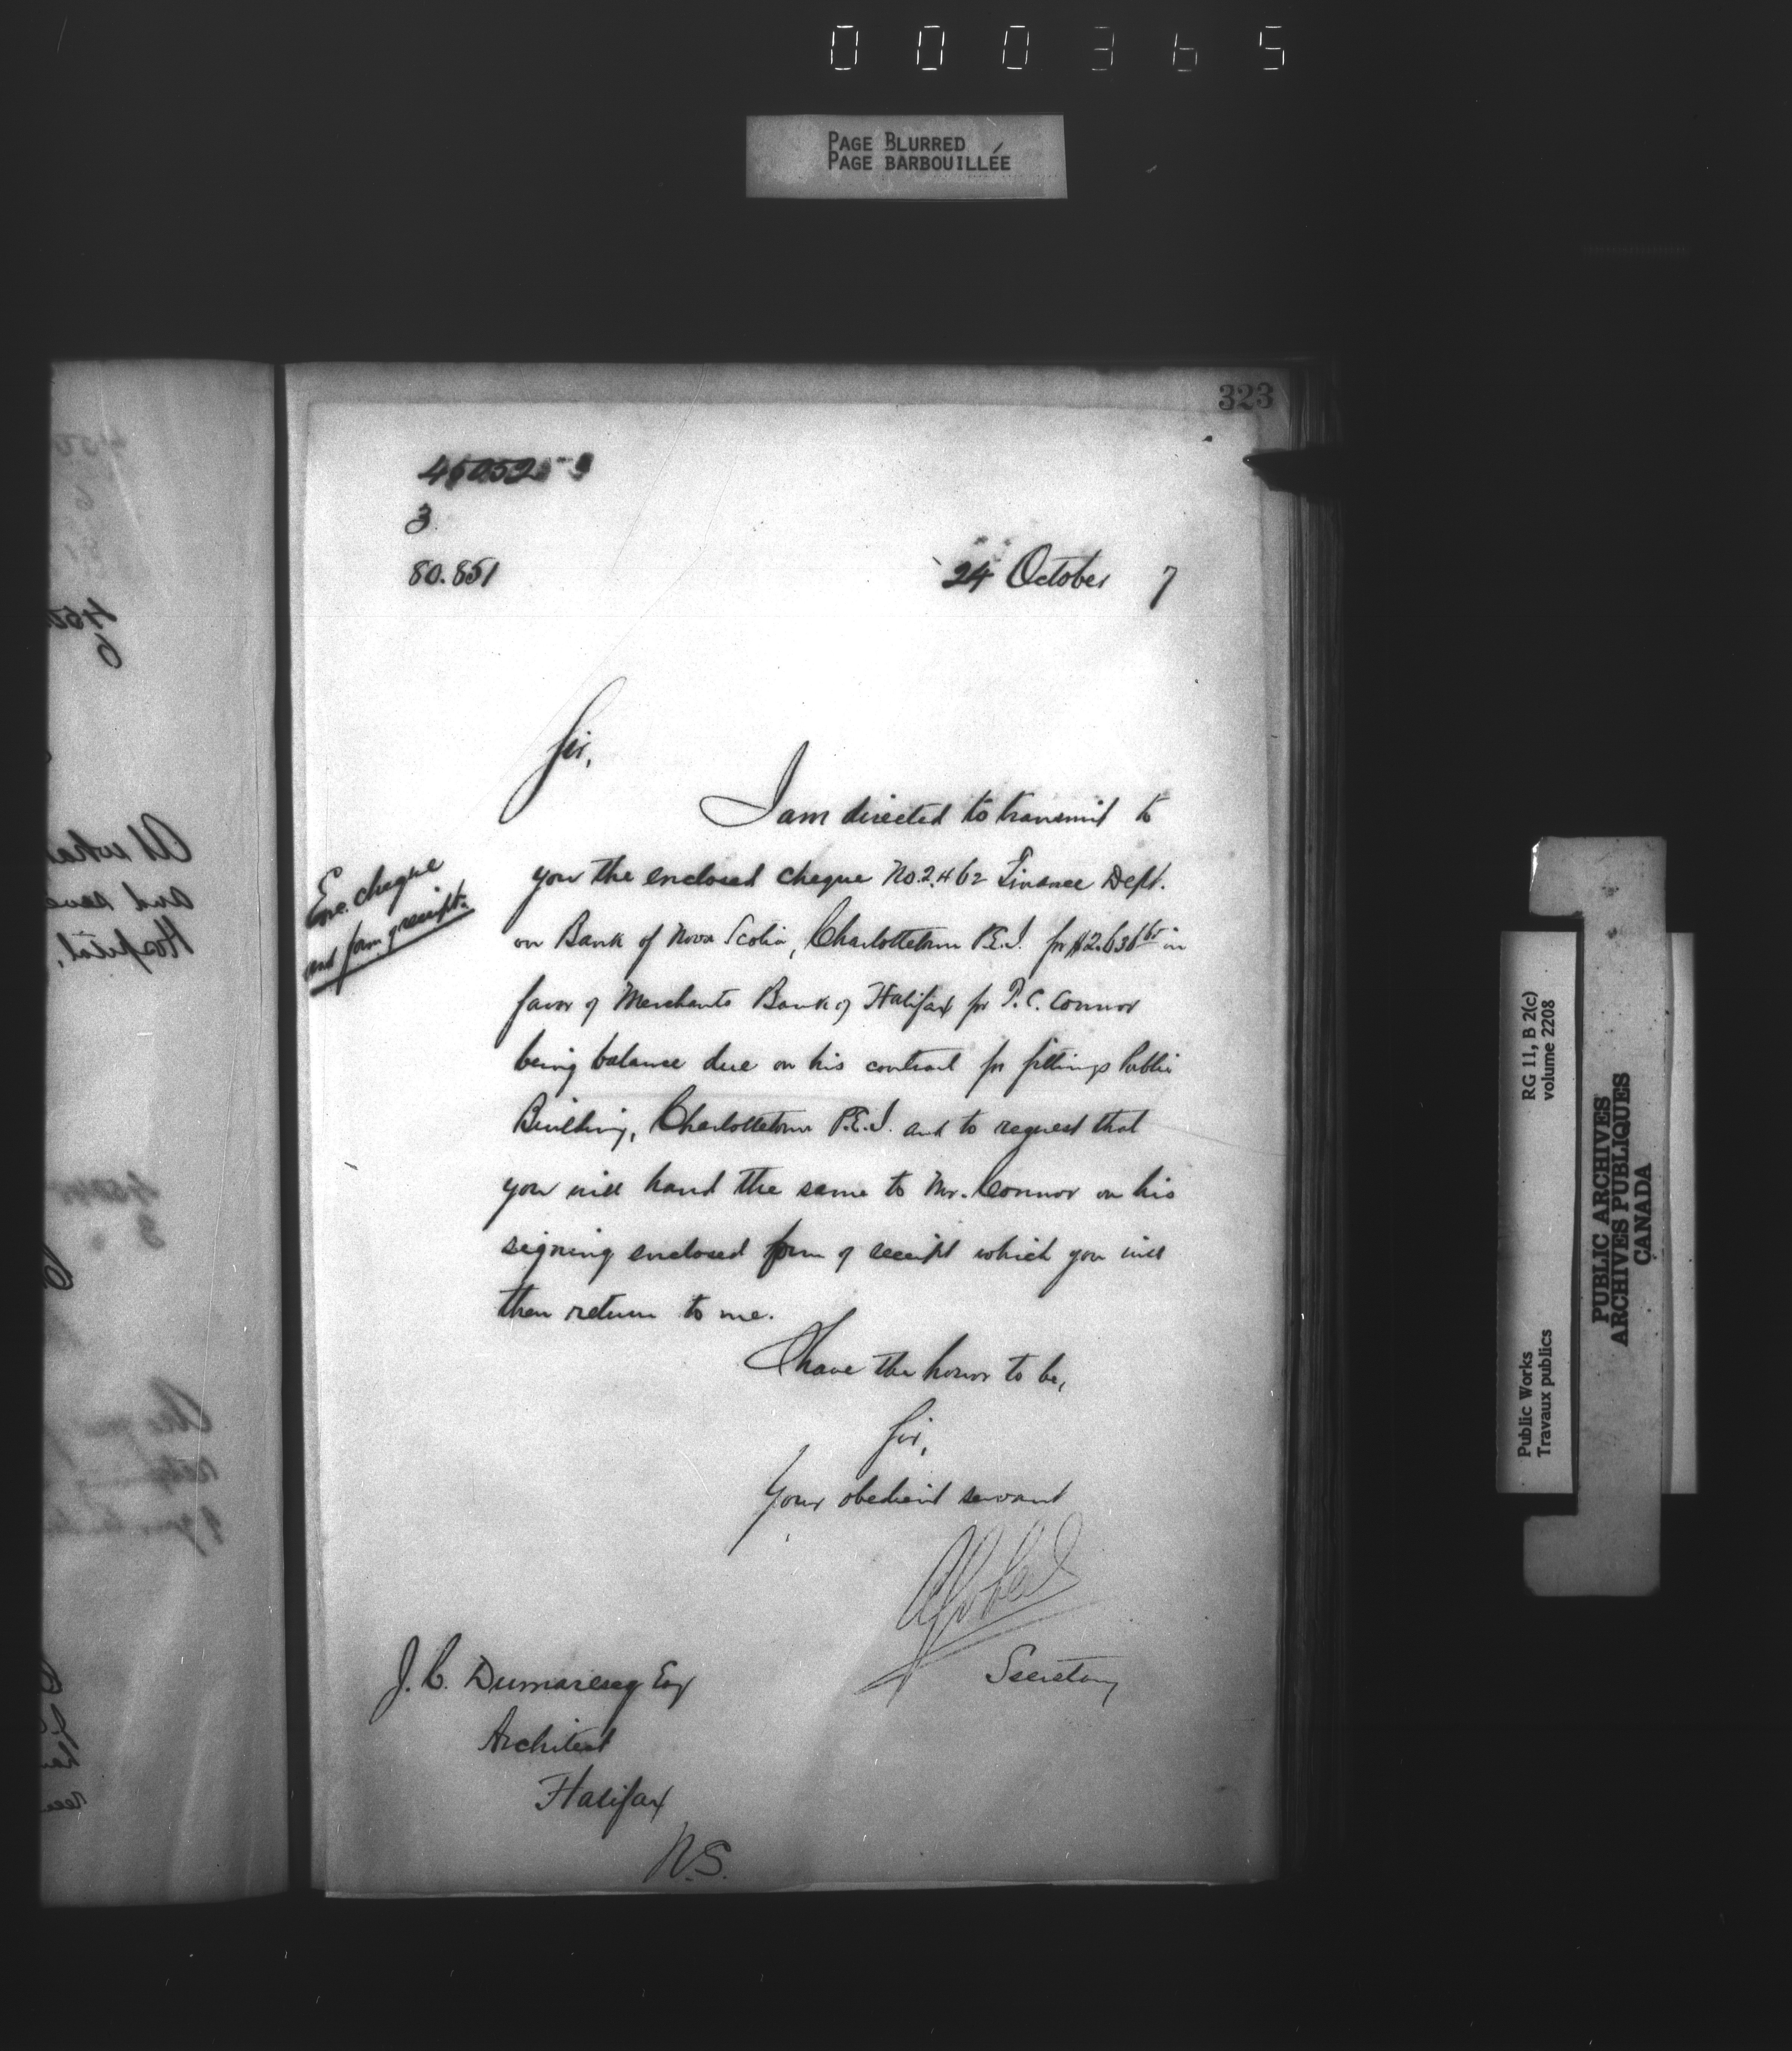 000365
PAGE BLURRED
PAGE BARBOUILLÉE
323
3
80.851
24 October 7
Sir,
I am directed to transmit to
you the enclosed cheque No. 2462 Finance Dept.
on Bank of Nova Scotia, Charlottetown P.E.I. for in
favor of Merchants Bank of Halifax for P.C. Connor
being balance due on his contract for fittings Public
Building, Charlottetown P.E.I. and to request that
you will hand the same to Mr. Connor on his
signing enclosed form of receipt which you will
then return to me.
Enc. cheque
and form of receipt.
I have the honor to be,
Sir,
Your obedient servant
Secretary
J.C. Dumaresq Esq
Architect
Halifax
N.S.
At
and
Hospital,
Public Works
Travaux publics
RG 11, B 2(c)
volume 2208
PUBLIC ARCHIVES
ARCHIVES PUBLIQUES
CANADA